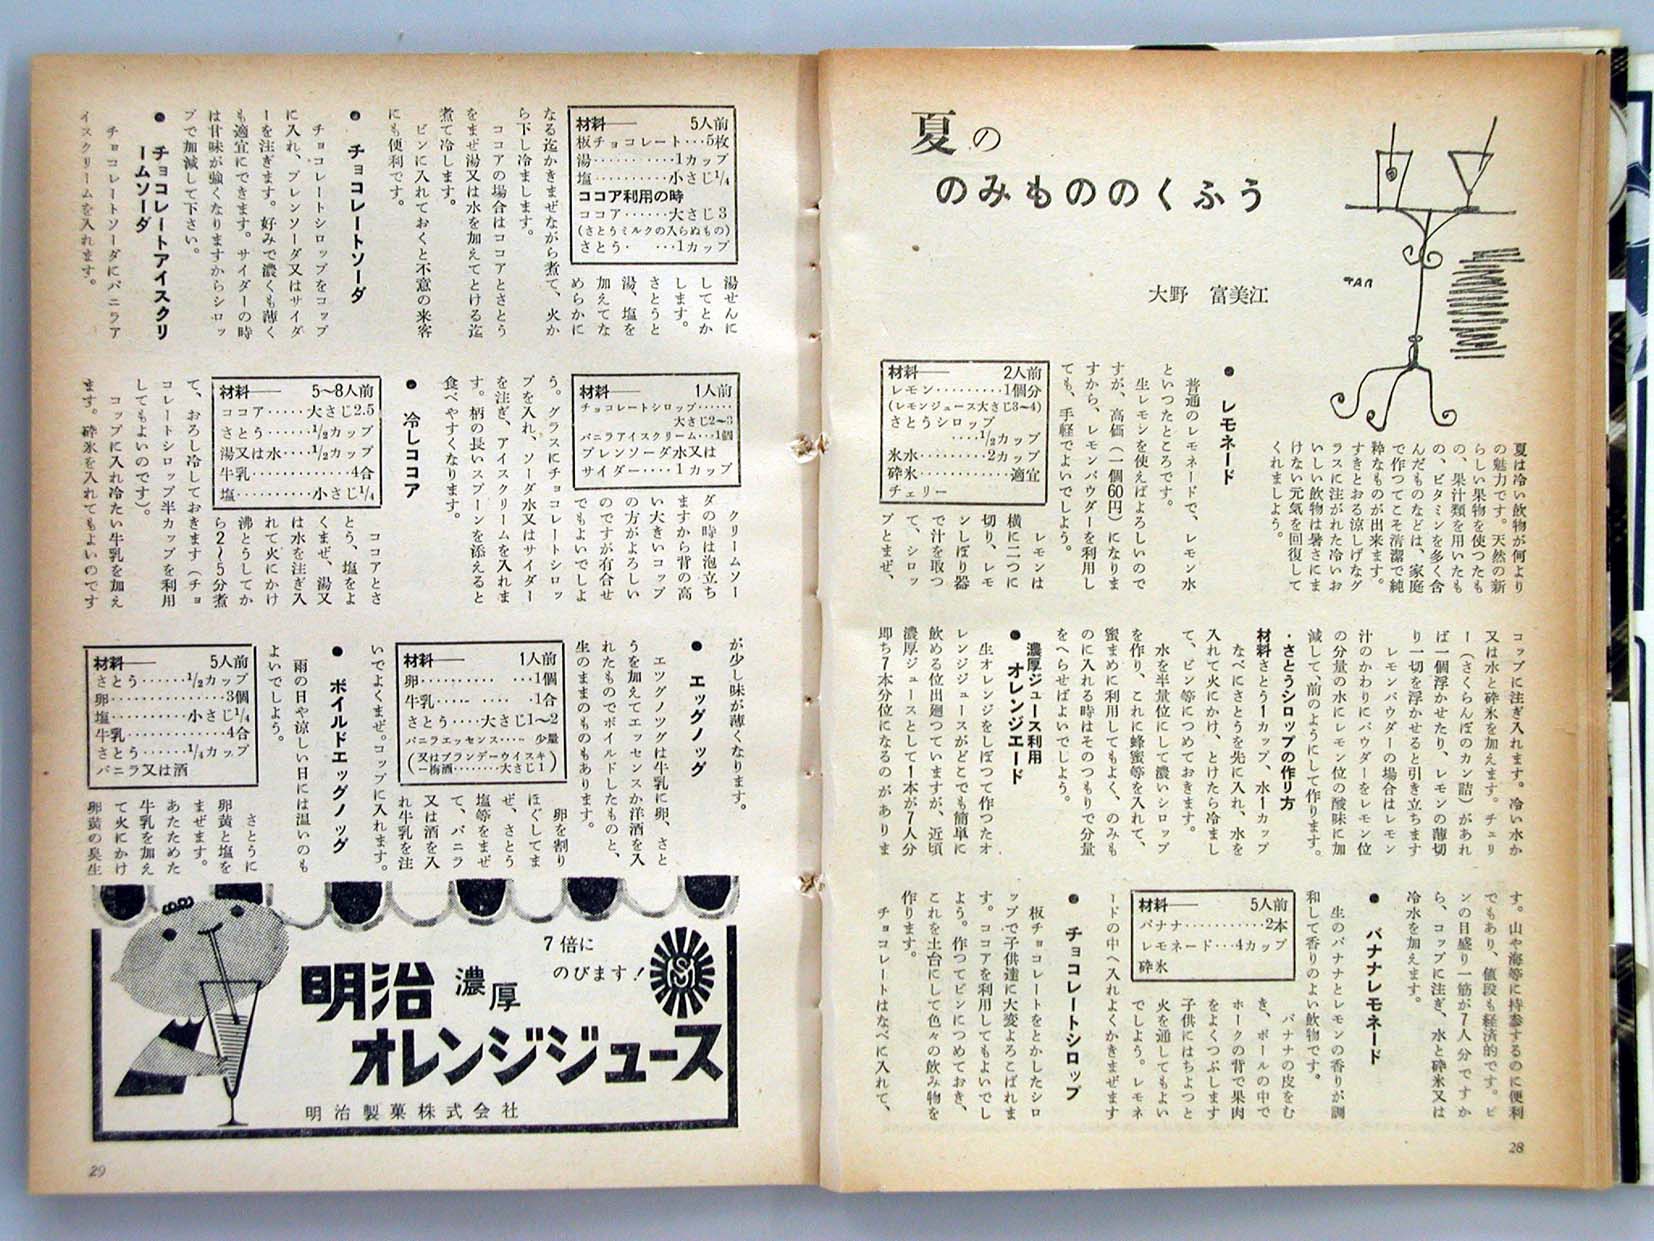 夏の
のみもののくふう
大野　富美江
夏は冷い飲物が何より
の魅力です。天然の新
らしい果物を使つたも
の、果汁類を用いたも
の、ビタミンを多く含
んだものなどは、家庭
で作つてこそ清潔で純
粋なものが出来ます。
すきとおる涼しげなグ
ラスに注がれた冷いお
いしい飲物は暑さにま
けない元気を回復して
くれましよう。
● レモネード
普通のレモネードで、レモン水
といつたところです。
生レモンを使えばよろしいので
すが、高価（一個60円）になりま
すから、レモンパウダーを利用し
ても、手軽でよいでしよう。
材料――　2人前
レモン………1個分
(レモンジュース大さじ3〜4)
さとうシロップ
….1/2カップ
氷水………2カップ
砕氷…………適宜
チェリー
レモンは
横に二つに
切り、レモ
ンしぼり器
で汁を取つ
て、シロッ
プとまぜ、
コップに注ぎ入れます。冷い水か
又は水と砕氷を加えます。チェリ
ー（さくらんぼのカン詰）があれ
ば一個浮かせたり、レモンの薄切
り一切を浮かせると引き立ちます
レモンパウダーの場合はレモン
汁のかわりにパウダーをレモン位
の分量の水にレモン位の酸味に加
減して、前のようにして作ります。
・さとうシロップの作り方
材料さとう1カップ、水1カップ
なべにさとうを先に入れ、水を
入れて火にかけ、とけたら冷まし
て、ビン等につめておきます。
水を半量位にして濃いシロップ
を作り、これに蜂蜜等を入れて、
蜜まめに利用してもよく、のみも
のに入れる時はそのつもりで分量
をへらせばよいでしよう。
● 濃厚ジュース利用
オレンジエード
生オレンジをしぼつて作つたオ
レンジジュースがどこでも簡単に
飲める位出廻つていますが、近頃
濃厚ジュースとして1本が7人分
即ち7本分位になるのがありま
す。山や海等に持参するのに便利
でもあり、値段も経済的です。ビ
ンの目盛り一筋が7人分ですか
ら、コップに注ぎ、水と砕氷又は
冷水を加えます。
● バナナレモネード
生のバナナとレモンの香りが調
和して香りのよい飲物です。
材料――　5人前
バナナ…………2本
レモネード…4カップ
砕氷
バナナの皮をむ
き、ボールの中で
ホークの背で果肉
をよくつぶします
子供にはちよつと
火を通してもよい
でしよう。レモネ
ードの中へ入れよくかきまぜます
● チョコレートシロップ
板チョコレートをとかしたシロ
ップで子供達に大変よろこばれま
す。ココアを利用してもよいでし
よう。作つてビンにつめておき、
これを土台にして色々の飲み物を
作ります。
チョコレートはなべに入れて、
28
材料――　5人前
板チョコレート…5枚
湯…………1カップ
塩…………小さじ1/4
ココア利用の時
ココア……大さじ3
(さとうミルクの入らぬもの)
さとう………1カップ
湯せんに
してとか
します。
さとうと
湯、塩を
加えてな
めらかに
なる迄かきまぜながら煮て、火か
ら下し冷まします。
ココアの場合はココアとさとう
をまぜ湯又は水を加えてとける迄
煮て冷します。
ビンに入れておくと不意の来客
にも便利です。
● チョコレートソーダ
チョコレートシロップをコップ
に入れ、プレンソーダ又はサイダ
ーを注ぎます。好みで濃くも薄く
も適宜にできます。サイダーの時
は甘味が強くなりますからシロッ
プで加減して下さい。
● チョコレートアイスクリ
ームソーダ
チョコレートソーダにバニラア
イスクリームを入れます。
材料――　1人前
チョコレートシロップ……
大さじ2〜3
バニラアイスクリーム…1個
プレンソーダ水又は
サイダー……1カップ
クリームソー
ダの時は泡立ち
ますから背の高
い大きいコップ
の方がよろしい
のですが有合せ
でもよいでしよ
う。グラスにチョコレートシロッ
プを入れ、ソーダ水又はサイダー
を注ぎ、アイスクリームを入れま
す。柄の長いスプーンを添えると
食べやすくなります。
● 冷しココア
材料――　5〜8人前
ココア……大さじ2.5
さとう……1/2カップ
湯又は水…1/2カップ
牛乳……………4合
塩…………小さじ1/4
ココアとさ
とう、塩をよ
くまぜ、湯又
は水を注ぎ入
れて火にかけ
沸とうしてか
ら2〜5分煮
て、おろし冷しておきます（チョ
コレートシロップ半カップを利用
してもよいのです）。
コップに入れ冷たい牛乳を加え
ます。砕氷を入れてもよいのです
が少し味が薄くなります。
● エッグノッグ
エツグノツグは牛乳に卵、さと
うを加えてエッセンスか洋酒を入
れたものでボイルドしたものと、
生のままのものもあります。
材料――　1人前
卵……………1個
牛乳…………1合
さとう……大さじ1〜2
バニラエッセンス……少量
(又はブランデーウイスキ
ー梅酒………大さじ1)
卵を割り
ほぐしてま
ぜ、さとう
塩等をまぜ
て、バニラ
又は酒を入
れ牛乳を注
いでよくまぜ。コップに入れます。
● ボイルドエッグノッグ
雨の日や涼しい日には温いのも
よいでしよう。
材料――　5人前
さとう……1/2カップ
卵……………3個
塩………小さじ1/4
牛乳……………4合
さとう……1/4カップ
バニラ又は酒
さとうに
卵黄と塩を
まぜます。
あたためた
牛乳を加え
て火にかけ
卵黄の臭生
7倍に
のびます！
明治 濃厚
オレンジジュース
明治製菓株式会社
29